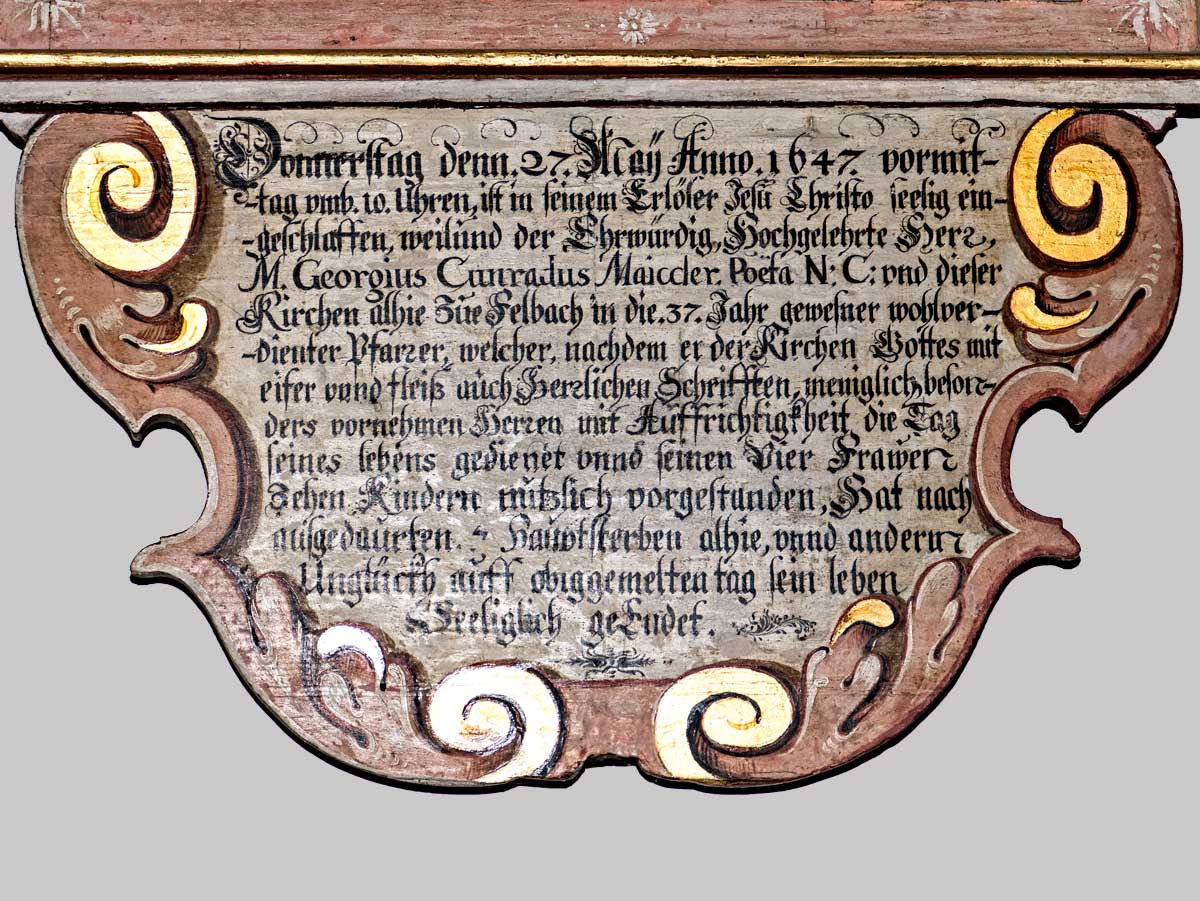 Donnerstag denn. 27. May Anno. 1647. vormit-
-tag vmb. 10. Uhren, ist in seinem Erlöser Jesu Christo seelig ein-
-geschlaffen, weilund der Ehrwürdig, Hochgelehrte Herr,
M. Georgius Cunradus Maiccler. Poëta N: C: vnd dieser
Kirchen alhie Zue Felbach in die. 37. Jahr gewesner wohlver-
-dienter Pfarrer, welcher, nachdem er der Kirchen Gottes mit
eifer vnnd fleiß auch Herrlichen Schrifften, meniglich, beson-
ders vornehmen Herren mit Auffrichtigkheit die Tag
seines lebens gedienet vnnd seinen Vier Frawen
Zehen Kindern nützlich vorgestanden, Hat nach
außgedaurten. Hauptsterben alhie, vnnd andern
Unglückh auff obiggemelten tag sein leben
Seeliglich geEndet.